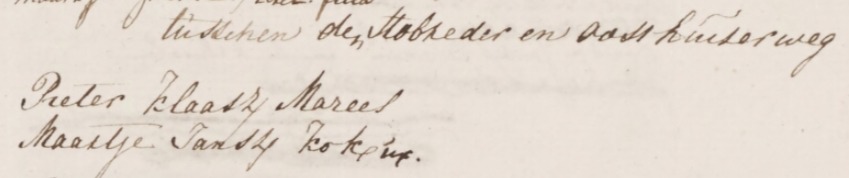 tusschen den Hobreder en oosthuiserweg
Pieter Klaasz Marees
Maartje Jansz Kok ux.